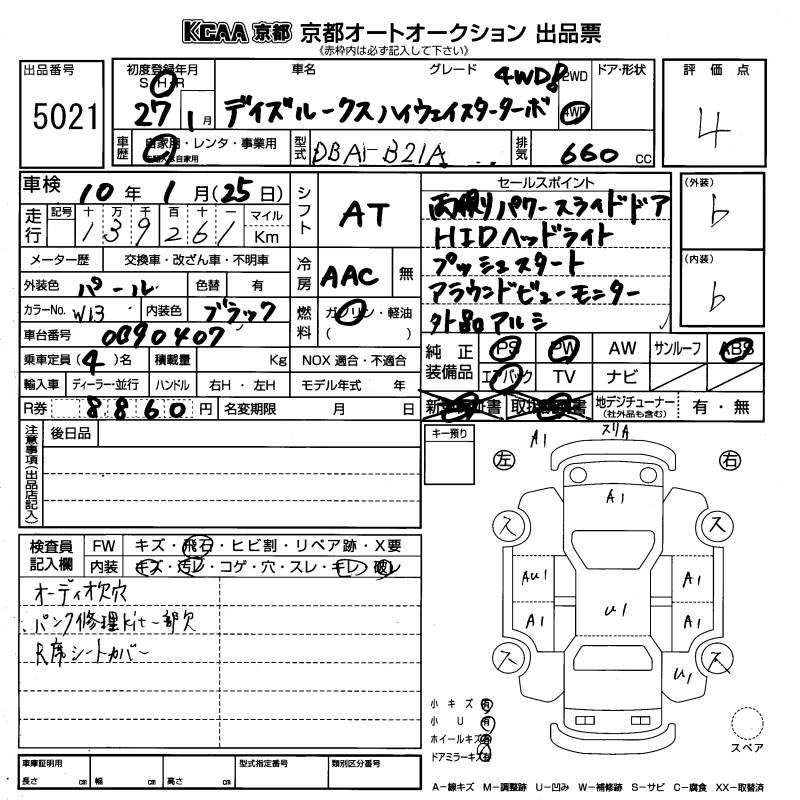 KCAA 京都 京都オートオークション 出品票
《赤枠内は必ず記入して下さい》
出品番号 5021
初度登録年月 S・H・R 27年 1月
車名 グレード 4WD!
デイズルークスハイウェイスターターボ
2WD 4WD ドア・形状
評価点 4
車歴 自家用・レンタ・事業用
型式 DBA-B21A
排気 660 CC
車検 10年 1月(25日)
走行 記号 十 万 千 百 十 一 マイル Km
139261
メーター歴 交換車・改ざん車・不明車
外装色 パール 色替 有
カラーNo. W13 内装色 ブラック
車台番号 0390407
乗車定員(4)名 積載量 Kg NOX 適合・不適合
輸入車 ディーラー・並行 ハンドル 右H・左H モデル年式 年
R券 8860円 名変期限 月 日
シフト AT
冷房 AAC 無
燃料 ガソリン・軽油 ( )
セールスポイント
両側りパワースライドドア
HIDヘッドライト
プッシュスタート
アラウンドビューモニター
外品アルミ
(外装) b
(内装) b
純正装備品 PS PW AW サンルーフ ABS
エアバック TV ナビ
新車保証書 取扱説明書 地デジチューナー(社外品も含む) 有・無
注意事項(出品店記入) 後日品
キー預り
検査員記入欄 FW キズ・飛石・ヒビ割・リペア跡・X要
内装 キズ・汚レ・コゲ・穴・スレ・キレ・破レ
オーディオ欠穴
パンク修理kit一部欠
R席シートカバー
A1 スリA
左 右
A1
ス ス
AU1 A1
U1
A1 A1
ス ス
U1
小キズ 有
小U 有
ホイールキズ 有
ドアミラーキズ 有
スペア
車庫証明用 型式指定番号 類別区分番号
長さ cm 幅 cm 高さ cm
A−線キズ M−調整跡 U−凹み W−補修跡 S−サビ C−腐食 XX−取替済